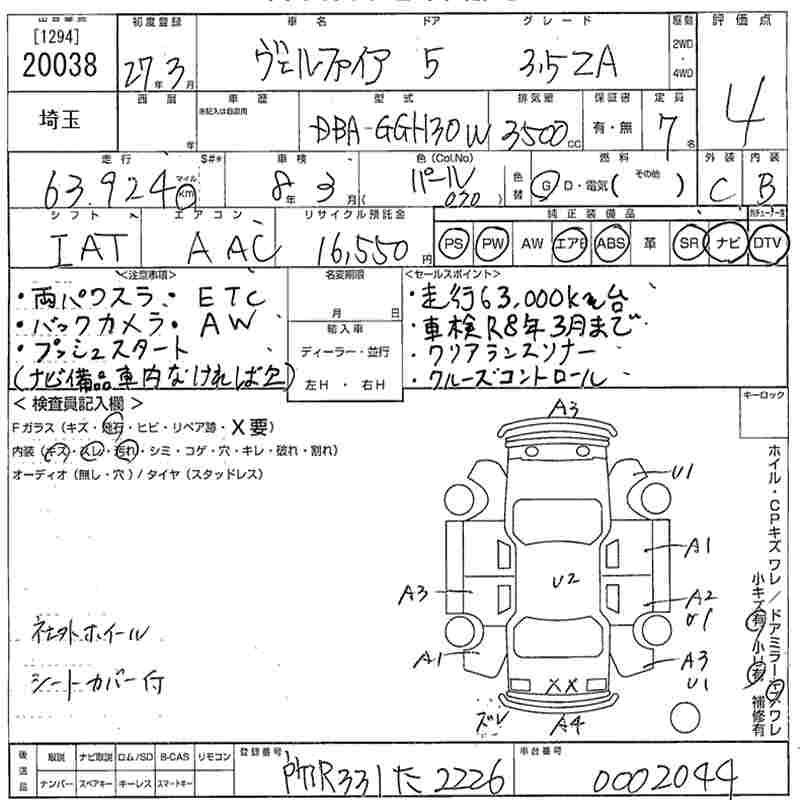 [1294] 初度登録 車名 ドア グレード 駆動 評価点
20038 27年3月 ヴェルファイア 5 3.5ZA 2WD・4WD 4
埼玉 西暦 年 車歴 ※記入は自家用 型式 DBA-GGH30W 排気量 3500cc 保証書 有・無 定員 7名
走行 63.924 マイル km S#* 車検 8年3月 色(Col.No) パール (070) 色替 燃料 G・D・電気( その他 ) 外装 C 内装 B
シフト IAT エアコン AAC リサイクル預託金 16,550円 純正装備品 PS PW AW エアB ABS 革 SR ナビ DTV
<注意事項> 名変期限 <セールスポイント>
・両パワスラ・ETC 月 日 ・走行63,000km台
・バックカメラ・AW 輸入車 ・車検R8年3月まで
・プッシュスタート ディーラー・並行 ・クリアランスソナー
(ナビ備品車内なければ欠) 左H・右H ・クルーズコントロール
<検査員記入欄> キーロック
Fガラス(キズ・飛石・ヒビ・リペア跡・X要)
内装(キズ・スレ・汚れ・シミ・コゲ・穴・キレ・破れ・割れ)
オーディオ(無し・穴)/タイヤ(スタッドレス)
A3
U1
A1
A3 U2 A2
U1
A1 A3
XX U1
ズレ A4
社外ホイール
シートカバー付
ホイル・CPキズワレ/ドアミラーキズワレ
小キズ有/小凹有 補修有
後送品 取説 ナビ取説 ロム/SD B-CAS リモコン 登録番号 車台番号
ナンバー スペアキー キーレス スマートキー 331 た 2226 0002044